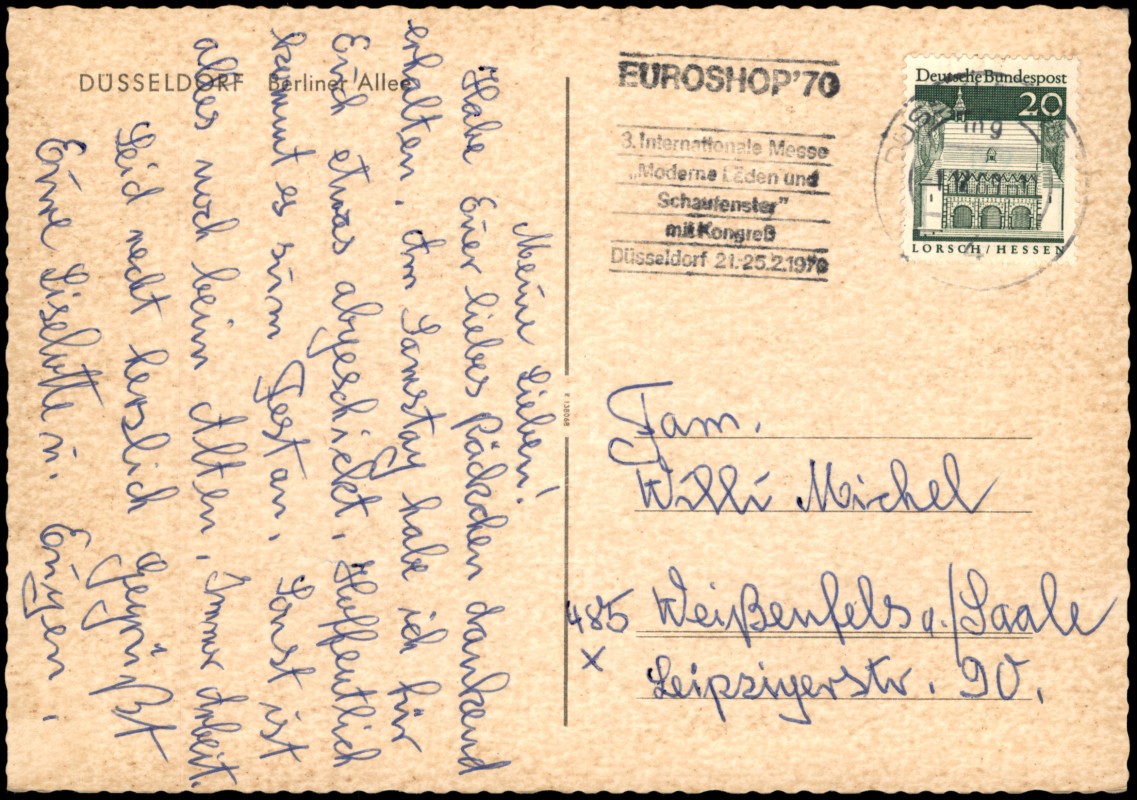 DÜSSELDORF Berliner Allee
Meine Lieben!
Habe Euer liebes Päckchen dankend
erhalten. Am Samstag habe ich für
Euch etwas abgeschickt. Hoffentlich
kommt es zum Fest an. Sonst ist
alles noch beim Alten. Immer Arbeit.
Seid recht herzlich gegrüßt
Eure Liselotte u. Eugen.
F 138068
EUROSHOP'70
3. Internationale Messe
„Moderne Läden und
Schaufenster"
mit Kongreß
Düsseldorf 21.-25.2.1970
Deutsche Bundespost
20
LORSCH/HESSEN
Fam.
Willi Michel
485 Weißenfels a./Saale
x
Leipzigerstr. 90.